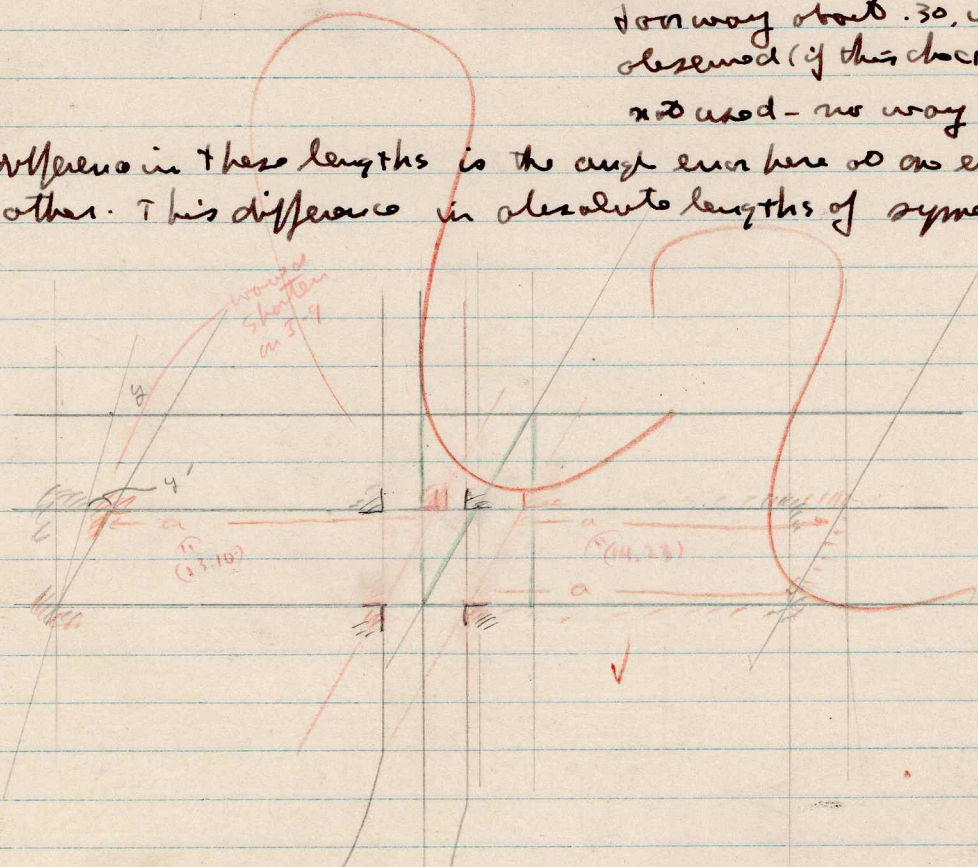 doorway about .30,
observed (if this
not used - no way
difference in these lengths is the angle error here
other. This difference in absolute lengths of
would
shorten
on 3-9
y
y'
a
a
(14.23)
a